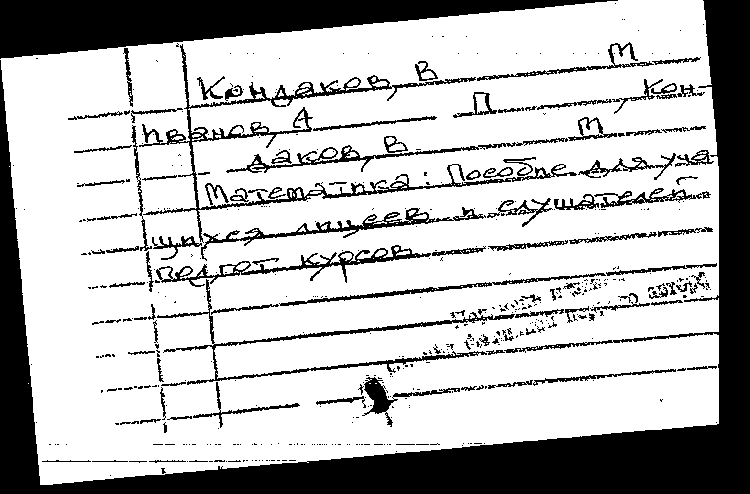 Кондаков, В М
Иванов, А П , Кон-
даков, В М
Математика: Пособие для уча-
щихся лицеев и слушателей
подгот курсов